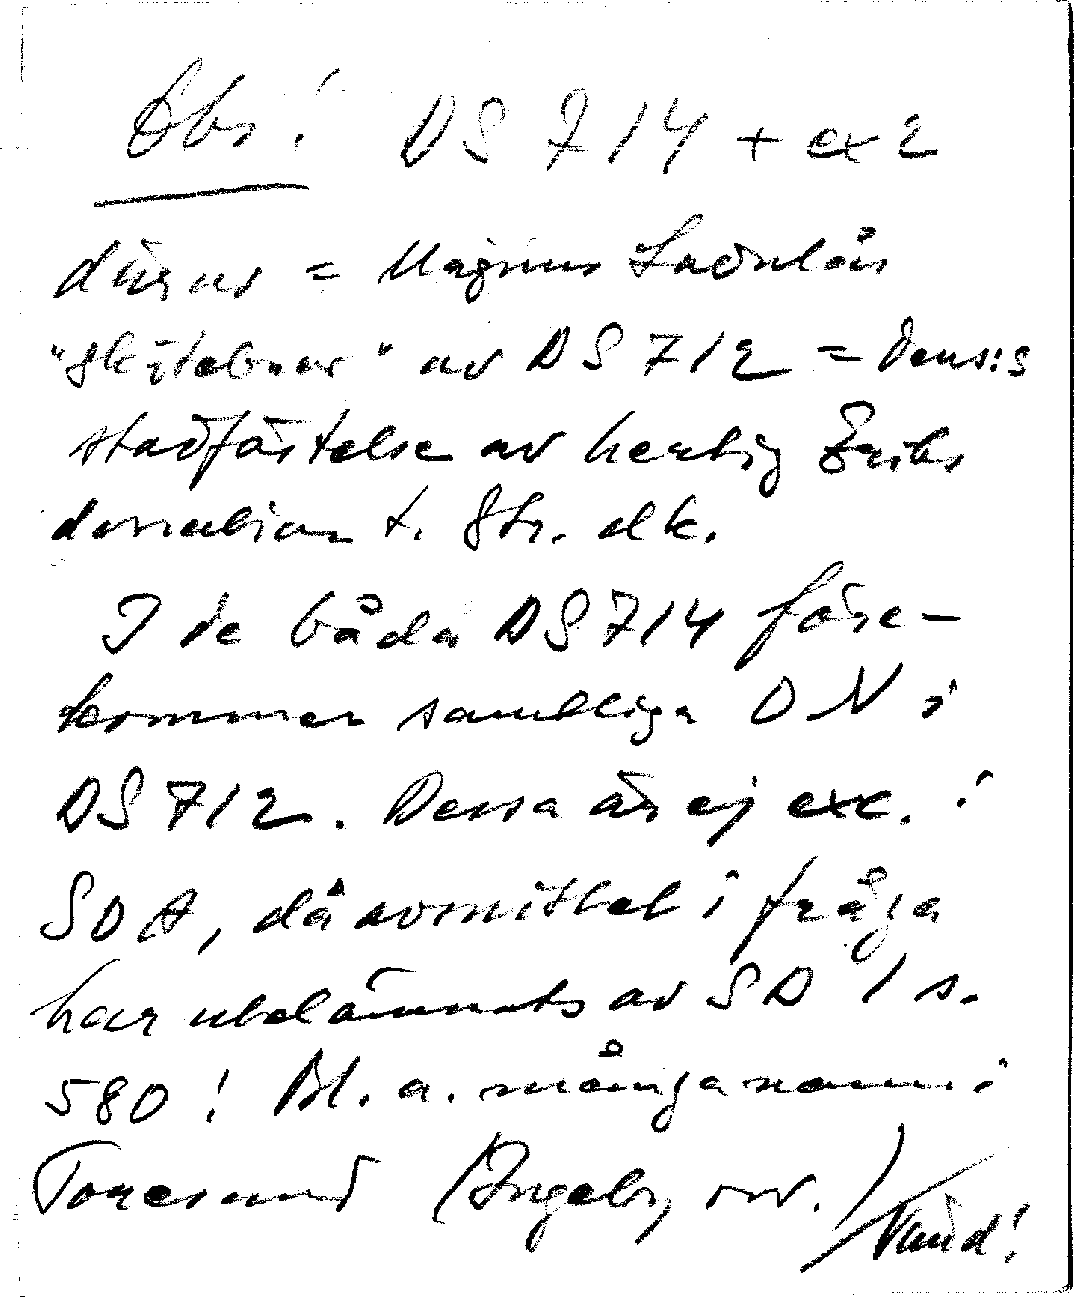 Obs! DS 714 + ex 2
därav = Magnus Ladulås
"skötebrev" av DS 712 = dens:s
stadfästelse av hertig Eriks
donation t. Str. dk.
I de båda DS 714 före-
kommer samtliga ON i
DS 712. Dessa är ej exc. i
SOA, då avsnittet i fråga
har utelämnats av SD 1 s.
580! Bl. a. många namn i
Toresund (Ingeby, osv.)
/Vand!